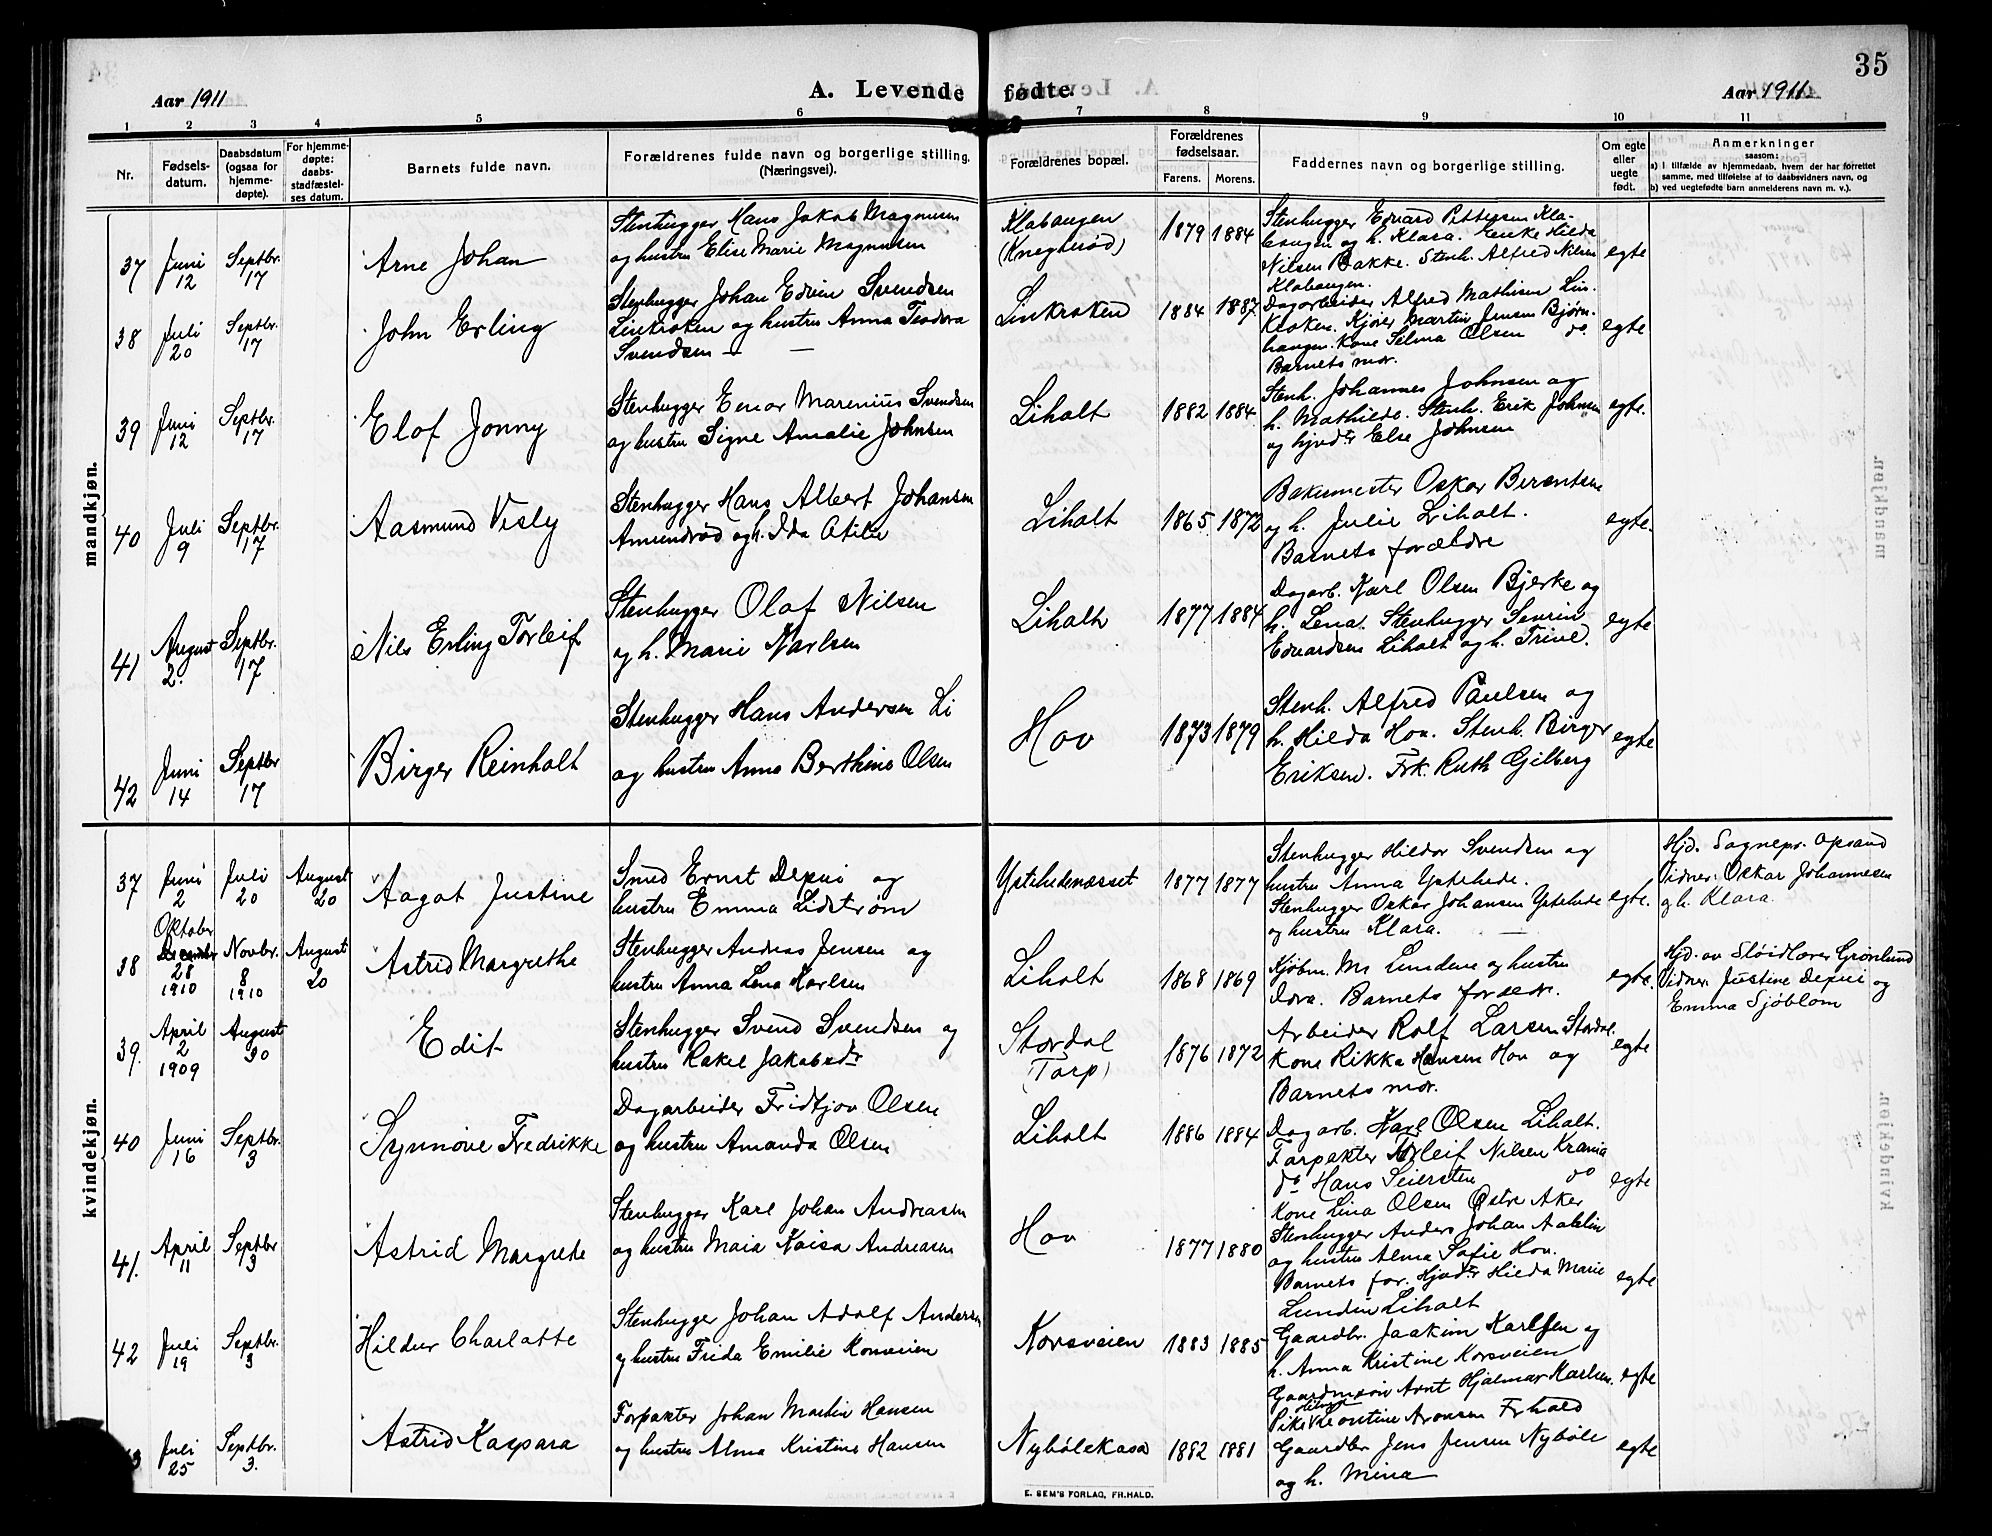 35
Aar 1911
A. Levende fødte.
Aar 1911.
1 2 3 4 5 6 7 8 9 10 11
Nr.
Fødselsdatum.
Daabsdatum (ogsaa for hjemmedøpte).
For hjemmedøpte: daabsstadfæstelses datum.
Barnets fulde navn.
Forældrenes fulde navn og borgerlige stilling. (Næringsvei).
Forældrenes bopæl.
Forældrenes fødselsaar.
Farens. Morens.
Faddernes navn og borgerlige stilling.
Om egte eller uegte født.
Anmerkninger
saasom:
a) i tilfælde av hjemmedaab, hvem der har forrettet samme, med tilføielse af to daabsvidners navn, og
b) ved uegtefødte barn anmelderens navn m. v.).
mandkjøn.
37 Juni 12 Septbr. 17
Arne Johan
Stenhugger Hans Jakob Magnusen
og hustru Elise Marie Magnusen
Klabaugen
(Knegterød)
1879 1884
Stenhugger Edvard Pettersen Kla-
baugen og h. Klara. Enke Hilda
Nilsen Bakke. Stenh. Alfred Nilsen
Klabaugen.
egte
38 Juli 20 Septbr. 17
John Erling
Stenhugger Johan Edvin Svendsen
Linkroken og hustru Anna Teodora
Svendsen
Linkroken
1884 1887
Dagarbeider Alfred Mathisen Lin-
kroken. Kjører Martin Jensen Bjørn-
haugen. Kone Selma Olsen do.
Barnets mor.
egte
39 Juni 12 Septbr. 17
Elof Jonny
Stenhugger Enor Marenius Svendsen
og hustru Signe Amalie Johnsen
Liholt
1882 1884
Stenh. Johannes Johnsen og
h. Mathilde. Stenh. Erik Johnsen
og hjvdtr Else Johnsen
egte.
40 Juli 9 Septbr. 17
Aasmund Visly
Stenhugger Hans Albert Johansen
Amundrød og h. Ida Otilie
Liholt
1865 1872
Bakermester Oskar Berentsen
og h. Julie Liholt.
Barnets forældre
egte.
41 August 2. Septbr. 17
Nils Erling Torleif
Stenhugger Olaf Nilsen
og h. Marie Karlsen
Liholt
1877 1884
Dagarb. Karl Olsen Bjerke og
h. Lena. Stenhugger Severin
Edvardsen Liholt og h. Trine.
egte
42 Juni 14 Septbr 17
Birger Reinholt
Stenhugger Hans Andersen Li
og hustru Anna Berthine Olsen
Hov
1873 1879
Stenh. Alfred Paulsen og
h. Hilda Hov. Stenh. Birger
Eriksen. Frk. Ruth Gilberg
egte
kvindekjøn.
37 Juni 2 Juli 20 August 20
Aagot Justine
Smed Ernst Depui og
hustru Emma Lidstrøm
Ystehedenæsset
1877 1877
Stenhugger Hildor Svendsen og
hustru Anna Ystehede.
Stenhugger Oskar Johansen Ystehede
og hustru Klara.
egte.
Hjd. Sognepr. Opsand
Vidner: Oskar Johannesen
og h. Klara.
38 Oktober 28 1910 Novbr. 8 1910 August 20
Astrid Margrethe
Stenhugger Andreas Jensen og
hustru Anna Lena Karlsen
Liholt
1868 1869
Kjøbm. Ms Lundene og hustru
Dora. Barnets forældr.
egte.
Hjd. av Sløidlærer Grønlund
Vidner: Justine Depui og
Emma Sjøblom
39. April 2 1909 August 20
Edit
Stenhugger Svend Svendsen og
hustru Rakel Jakobsdtr
Stordal
(Torp)
1876 1872
Arbeider Rolf Larsen Stordal.
Kone Rikka Hansen Hov og
Barnets mor.
egte
40 Juni 16 Septbr. 3
Synnøve Fredrikke
Dagarbeider Fridtjov Olsen
og hustru Amanda Olsen
Liholt
1886 1884
Dagarb. Karl Olsen Liholt.
Forpakter Torleif Nilsen Krania
do Hans Seiersten do
Kone Lina Olsen Østre Aker
egte
41. April 11 Septbr 3
Astrid Margrete
Stenhugger Karl Johan Andreasen
og hustru Maia Kaisa Andreasen
Hov
1877 1880
Stenhugger Anders Johan Aahlin
og hustru Alma Sofie Hov.
Barnets far. Hjvdtr Hilda Marie
Lunden Liholt
egte
42 Juli 19 Septbr. 3
Hildur Charlotte
Stenhugger Johan Adolf Andersen
og hustru Frida Emilie Korsveien
Korsveien
1883 1885
Gaardbr. Joakim Karlsen og
h. Anna Kristine Korsveien
Gaardmand Arnt Hjalmar Karlsen.
egte
3 Juli 25 Septbr. 3.
Astrid Kaspara
Forpakter Johan Martin Hansen
og hustru Alma Kristine Hansen
Nybølekasa
1882 1881
Pike Leontine Aronsen Frhald
Gaardbr Jens Jensen Nybøle
og h. Mina
egte
E. SEM'S FORLAG, FR.HALD.